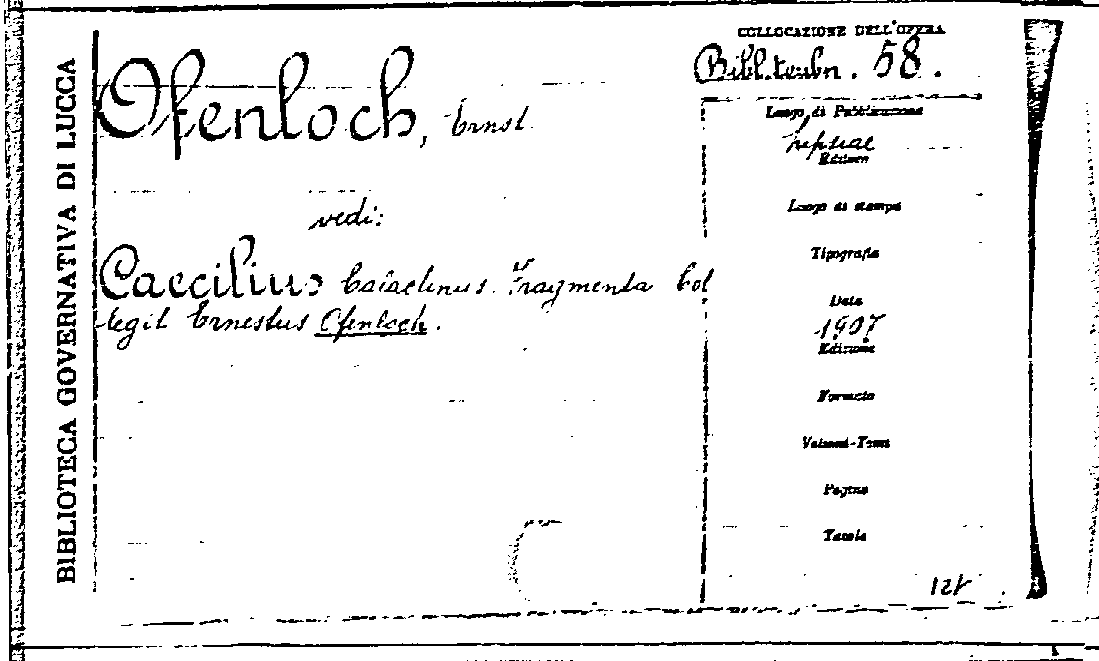 BIBLIOTECA GOVERNATIVA DI LUCCA
COLLOCAZIONE DELL'OPERA
Bibl. teubn. 58.
Ofenloch, Ernst
vedi:
Caecilius Calactinus. Fragmenta Col
legit Ernestus Ofenloch.
Luogo di Pubblicazione
Lipsiae
Editore
Luogo di stampa
Tipografia
Data
1907
Edizione
Formato
Volumi-Tomi
Pagine
Tavole